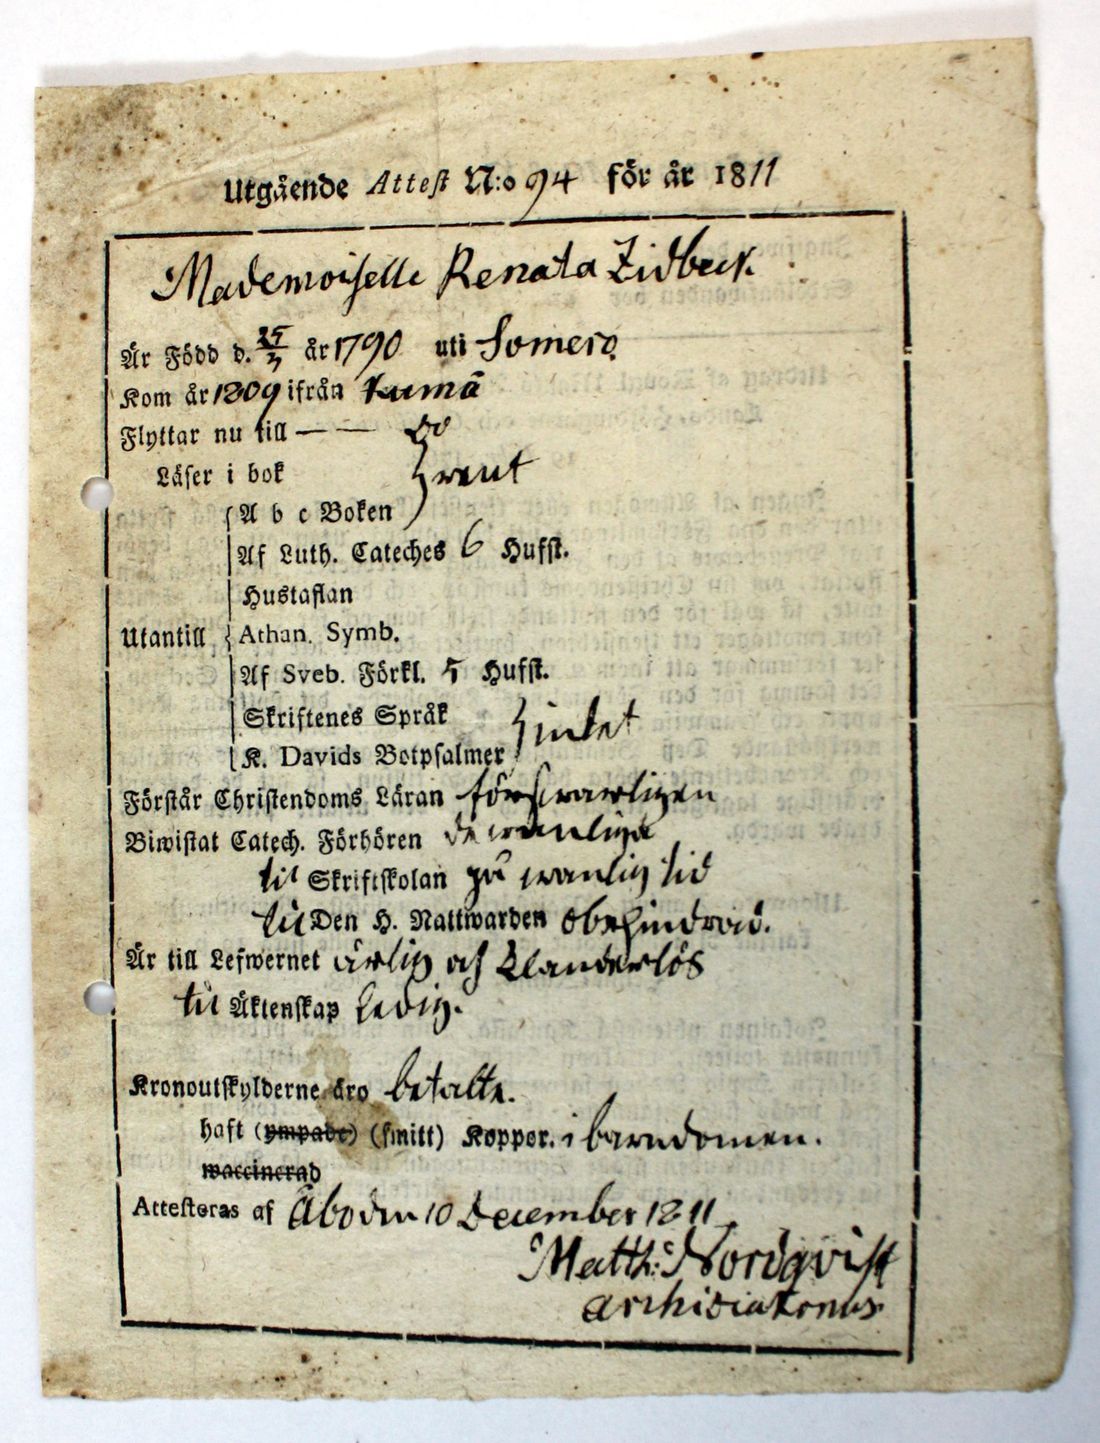 Utgående Attest N:o 94 för år 1811
Mademoiselle Renata Zidbeck
Är Född d. 25/3 år 1790 uti Somero
Kom år 1809 ifrån Kumå
Flyttar nu till — — do
Läser i bok rent
A b c Boken
Af Luth. Cateches 6 Hufst.
Hustaflan
Utantill Athan. Symb.
Af Sveb. Förkl. 5 Hufst.
Skriftenes Språk
K. Davids Botpsalmer
Förstår Christendoms Läran förswarligen
Biwistat Catech. Förhören de wanliga
til Skriftskolan på wanlig tid
til Den H. Nattwarden obehindrad.
Är till Lefwernet ärlig och Klanderlös
til Äktenskap Ledig.
Kronoutskylderne äro betalte.
haft (ympade) (smitt) Koppor. i barndomen.
waccinerad
Attesteras af Åbo den 10 December 1811
Matth: Nordqvist
archidiakonus